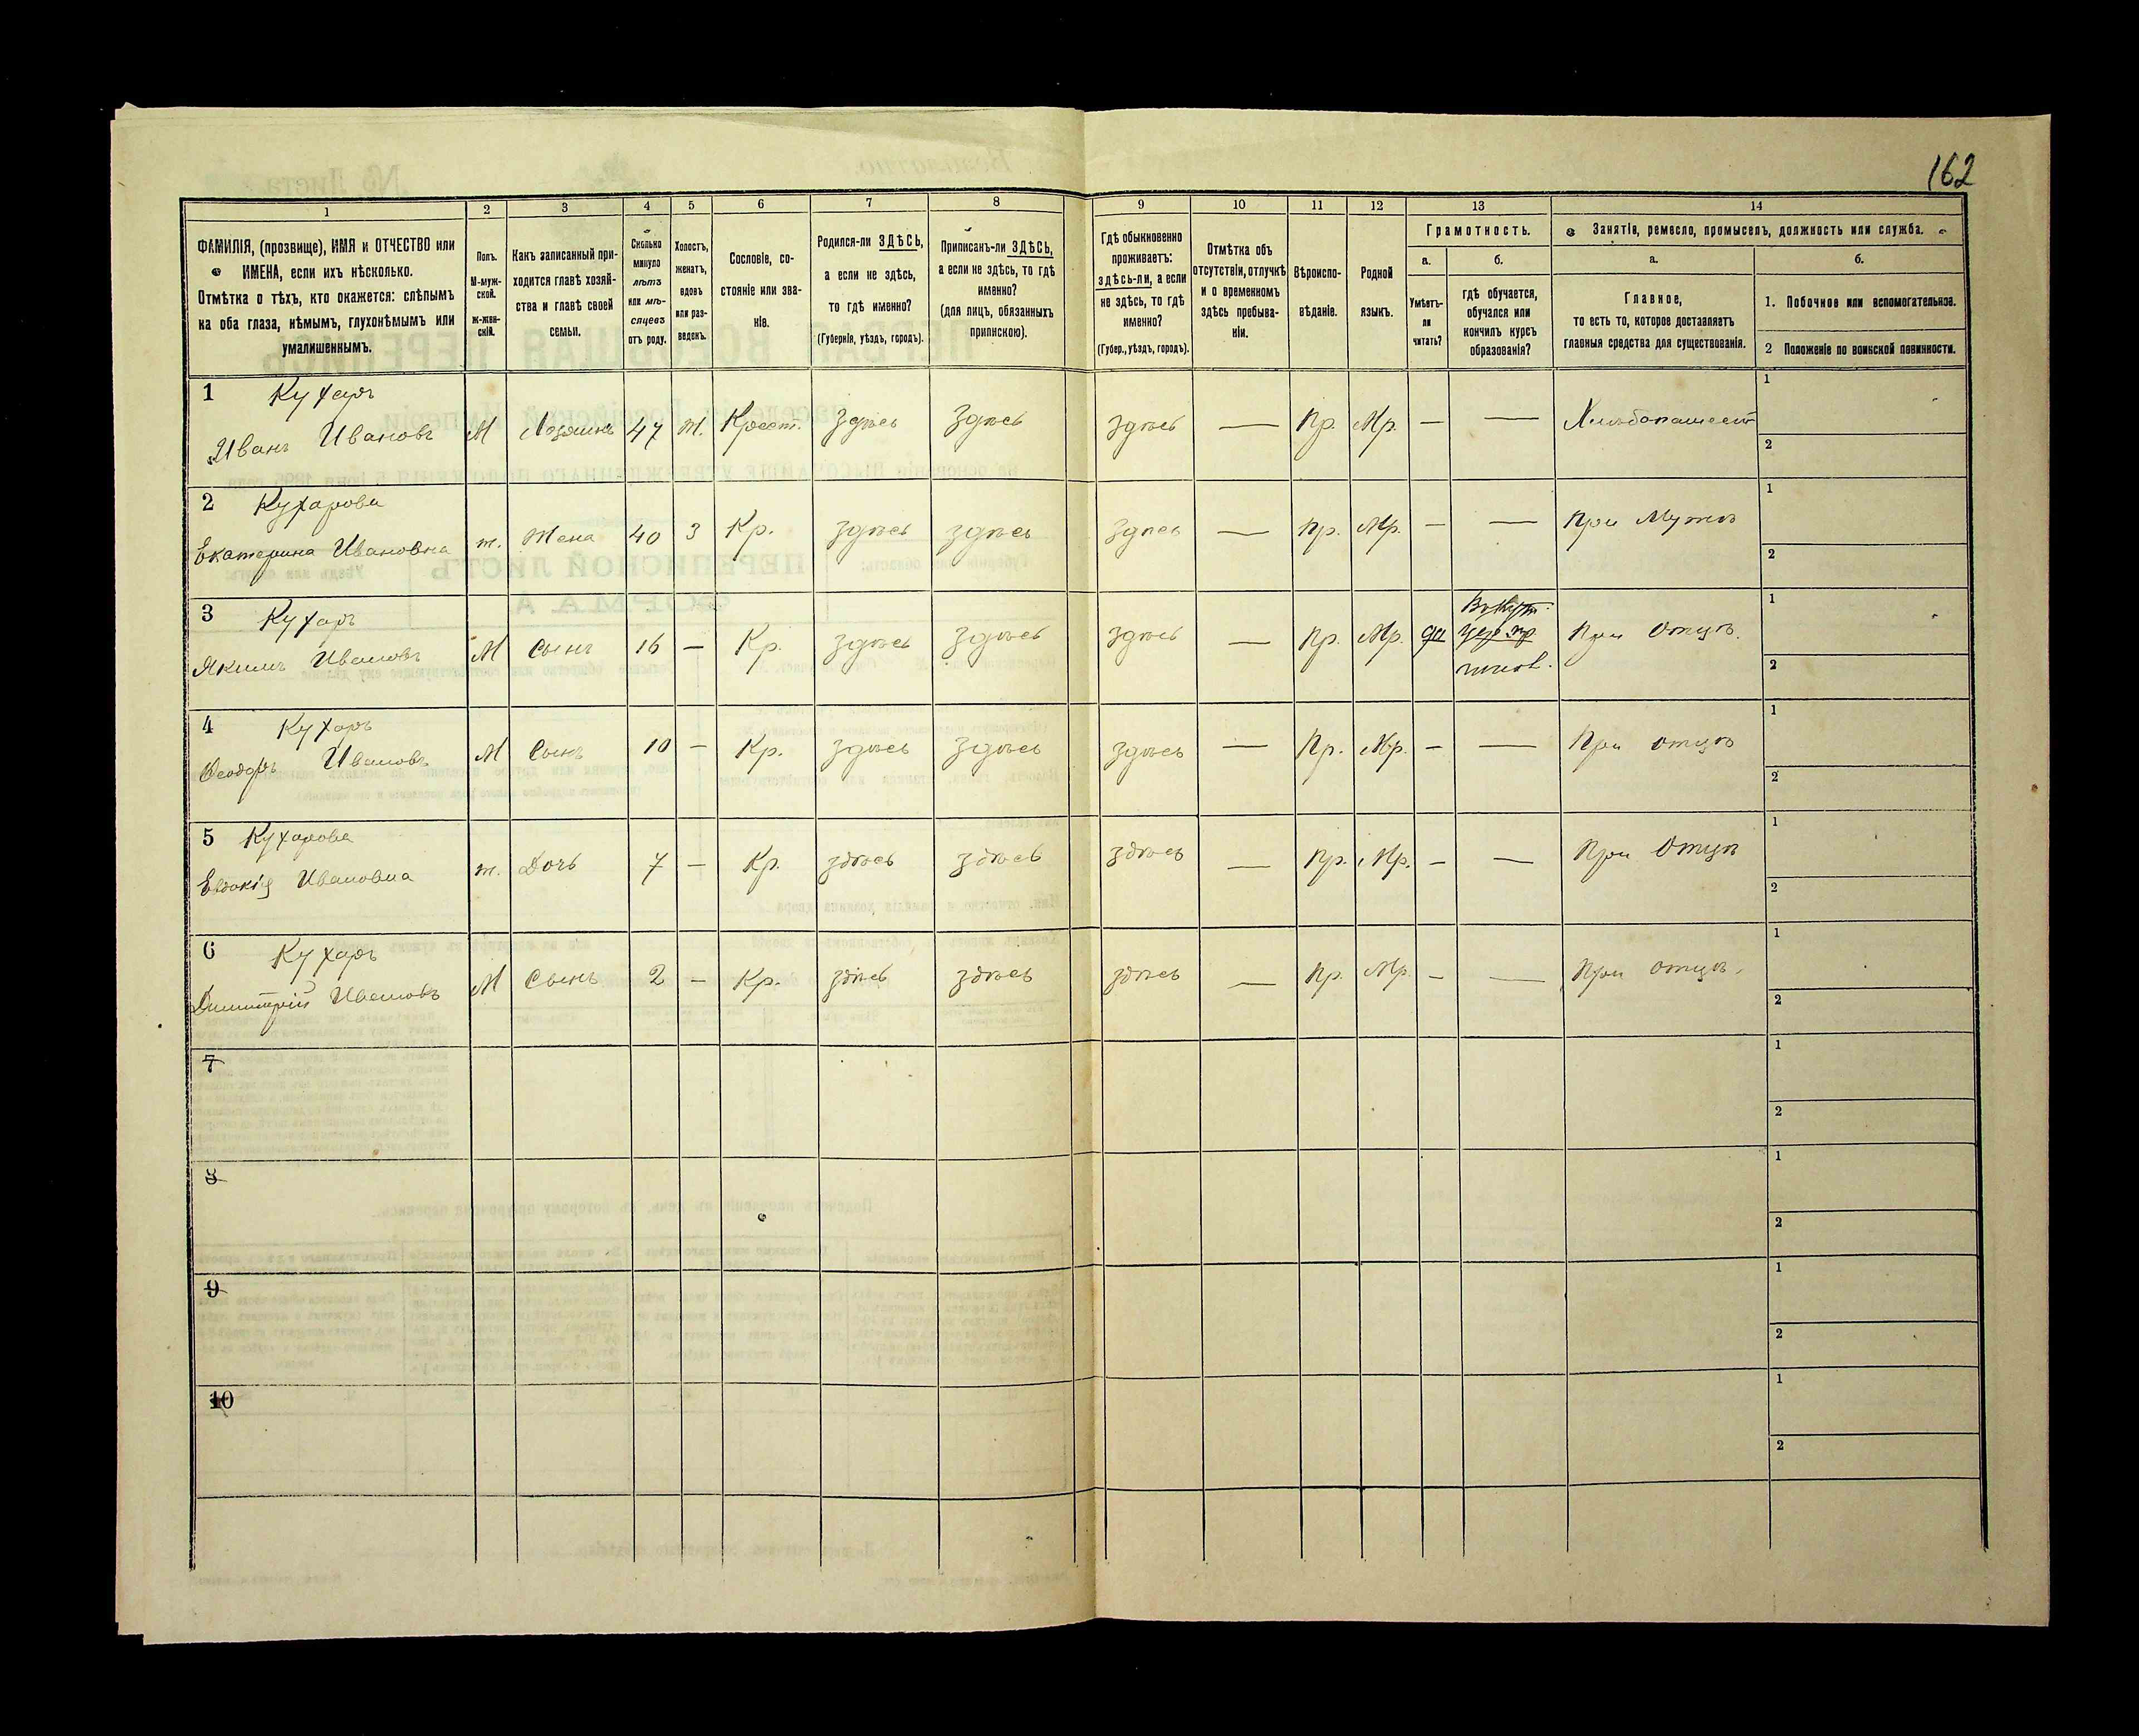 162
1 2 3 4 5 6 7 8 9 10 11 12 13 14
ФАМИЛІЯ, (прозвище), ИМЯ и ОТЧЕСТВО или
ИМЕНА, если ихъ нѣсколько.
Отмѣтка о тѣхъ, кто окажется: слѣпымъ
на оба глаза, нѣмымъ, глухонѣмымъ или
умалишеннымъ.
Полъ.
М-муж-
ской.
Ж-жен-
скій.
Какъ записанный при-
ходится главѣ хозяй-
ства и главѣ своей
семьи.
Сколько
минуло
лѣтъ
или мѣ-
сяцевъ
отъ роду.
Холостъ,
женатъ,
вдовъ
или раз-
веденъ.
Сословіе, со-
стояніе или зва-
ніе.
Родился-ли ЗДѢСЬ,
а если не здѣсь,
то гдѣ именно?
(Губернія, уѣздъ, городъ).
Приписанъ-ли ЗДѢСЬ,
а если не здѣсь, то гдѣ
именно?
(для лицъ, обязанныхъ
припискою).
Гдѣ обыкновенно
проживаетъ:
здѣсь-ли, а если
не здѣсь, то гдѣ
именно?
(Губер., уѣздъ, городъ).
Отмѣтка объ
отсутствіи, отлучкѣ
и о временномъ
здѣсь пребыва-
ніи.
Вѣроиспо-
вѣданіе.
Родной
языкъ.
Грамотность.
а.
Умѣетъ-
ли
читать?
б.
гдѣ обучается,
обучался или
кончилъ курсъ
образованія?
Занятіе, ремесло, промыселъ, должность или служба.
а.
Главное,
то есть то, которое доставляетъ
главныя средства для существованія.
б.
1. Побочное или вспомогательное.
2 Положеніе по воинской повинности.
1 Кухарь
Иванъ Ивановъ М Хозяинъ 47 Ж. Крест. Здѣсь Здѣсь Здѣсь — Пр. Мр. — — Хлѣбопашест
1
2
2 Кухарова
Екатерина Ивановна ж. Жена 40 З Кр. здѣсь здѣсь здѣсь — Пр. Мр. — — При Мужѣ
1
2
3 Кухарь
Якимъ Ивановъ М Сынъ 16 — Кр. здѣсь здѣсь здѣсь — Пр. Мр. да
школ.
При Отцѣ.
1
2
4 Кухарь
Ѳеодоръ Ивановъ М Сынъ 10 — Кр. здѣсь здѣсь здѣсь — Пр. Мр. — — При отцѣ
1
2
5 Кухарова
Евдокія Ивановна ж. Дочь 7 — Кр. здѣсь здѣсь здѣсь — Пр. Мр. — — При Отцѣ
1
2
6 Кухарь
Димитрій Ивановъ М Сынъ 2 — Кр. здѣсь здѣсь здѣсь — Пр. Мр. — — При отцѣ.
1
2
7
1
2
8
1
2
9
1
2
10
1
2